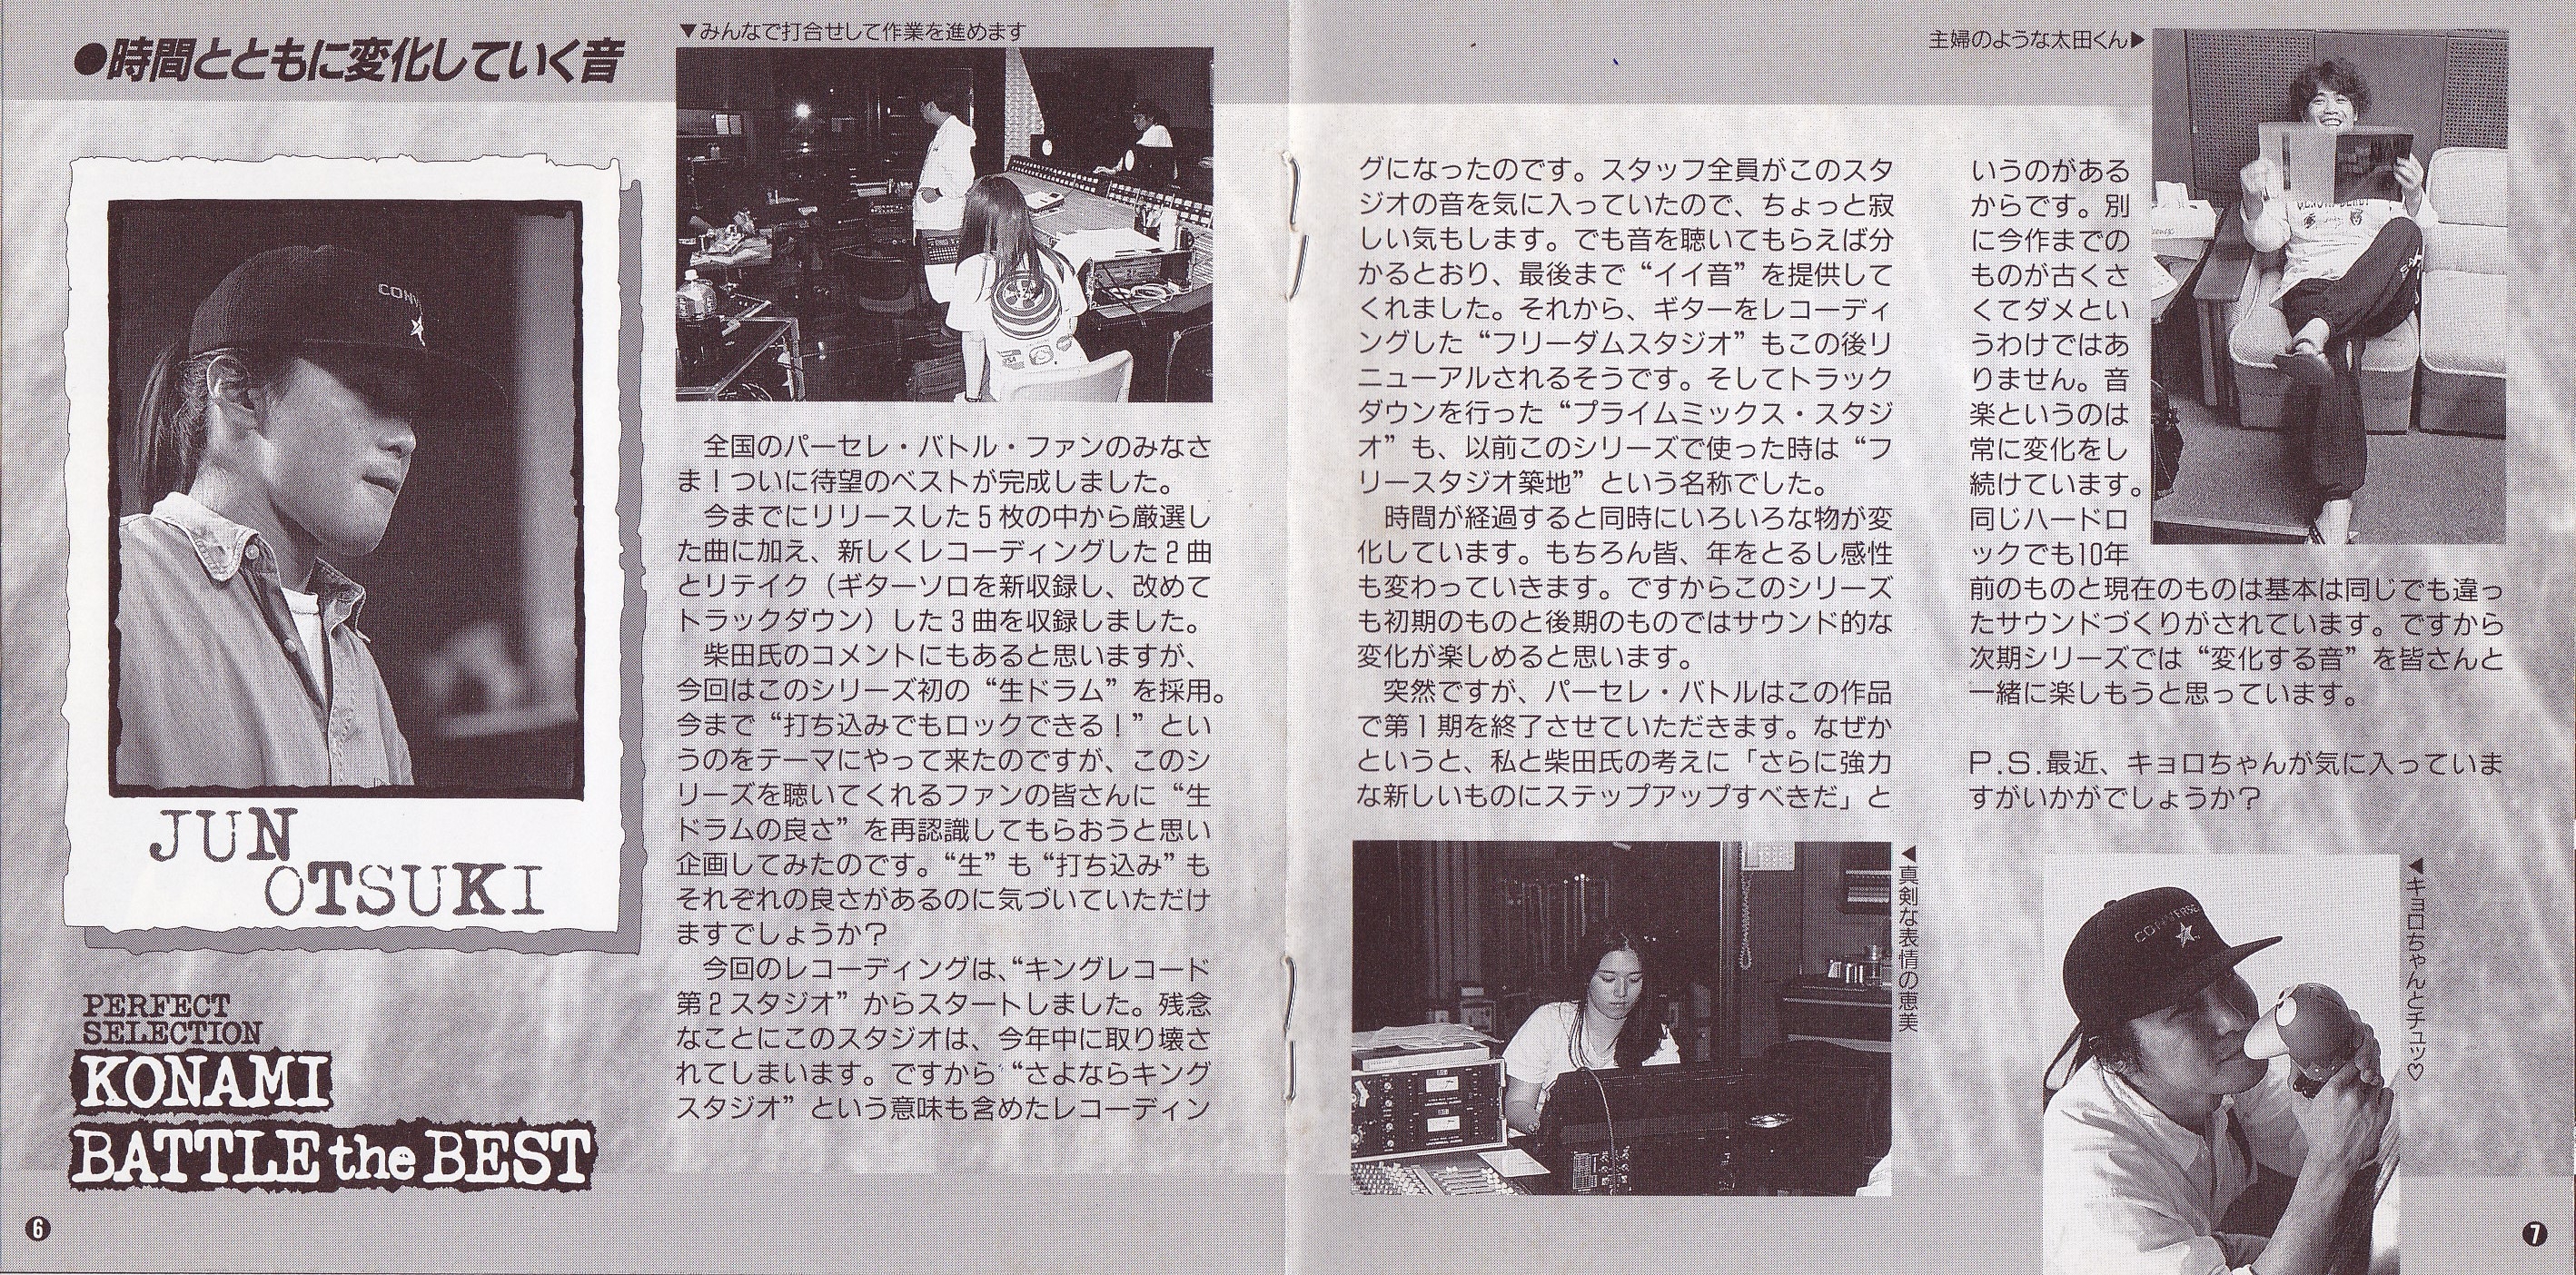 ●時間とともに変化していく音
CONV
JUN
OTSUKI
PERFECT
SELECTION
KONAMI
BATTLE the BEST
6
▼みんなで打合せして作業を進めます
　全国のパーセレ・バトル・ファンのみなさ
ま！ついに待望のベストが完成しました。
　今までにリリースした5枚の中から厳選し
た曲に加え、新しくレコーディングした2曲
とリテイク（ギターソロを新収録し、改めて
トラックダウン）した3曲を収録しました。
　柴田氏のコメントにもあると思いますが、
今回はこのシリーズ初の“生ドラム”を採用。
今まで“打ち込みでもロックできる！”とい
うのをテーマにやって来たのですが、このシ
リーズを聴いてくれるファンの皆さんに“生
ドラムの良さ”を再認識してもらおうと思い
企画してみたのです。“生”も“打ち込み”も
それぞれの良さがあるのに気づいていただけ
ますでしょうか？
　今回のレコーディングは、“キングレコード
第2スタジオ”からスタートしました。残念
なことにこのスタジオは、今年中に取り壊さ
れてしまいます。ですから“さよならキング
スタジオ”という意味も含めたレコーディン
グになったのです。スタッフ全員がこのスタ
ジオの音を気に入っていたので、ちょっと寂
しい気もします。でも音を聴いてもらえば分
かるとおり、最後まで“イイ音”を提供して
くれました。それから、ギターをレコーディ
ングした“フリーダムスタジオ”もこの後リ
ニューアルされるそうです。そしてトラック
ダウンを行った“プライムミックス・スタジ
オ”も、以前このシリーズで使った時は“フ
リースタジオ築地”という名称でした。
　時間が経過すると同時にいろいろな物が変
化しています。もちろん皆、年をとるし感性
も変わっていきます。ですからこのシリーズ
も初期のものと後期のものではサウンド的な
変化が楽しめると思います。
　突然ですが、パーセレ・バトルはこの作品
で第1期を終了させていただきます。なぜか
というと、私と柴田氏の考えに「さらに強力
な新しいものにステップアップすべきだ」と
◀真剣な表情の恵美
主婦のような太田くん▶
いうのがある
からです。別
に今作までの
ものが古くさ
くてダメとい
うわけではあ
りません。音
楽というのは
常に変化をし
続けています。
同じハードロ
ックでも10年
前のものと現在のものは基本は同じでも違っ
たサウンドづくりがされています。ですから
次期シリーズでは“変化する音”を皆さんと
一緒に楽しもうと思っています。
P.S.最近、キョロちゃんが気に入っていま
すがいかがでしょうか？
CONVERSE
◀キョロちゃんとチュッ♡
7